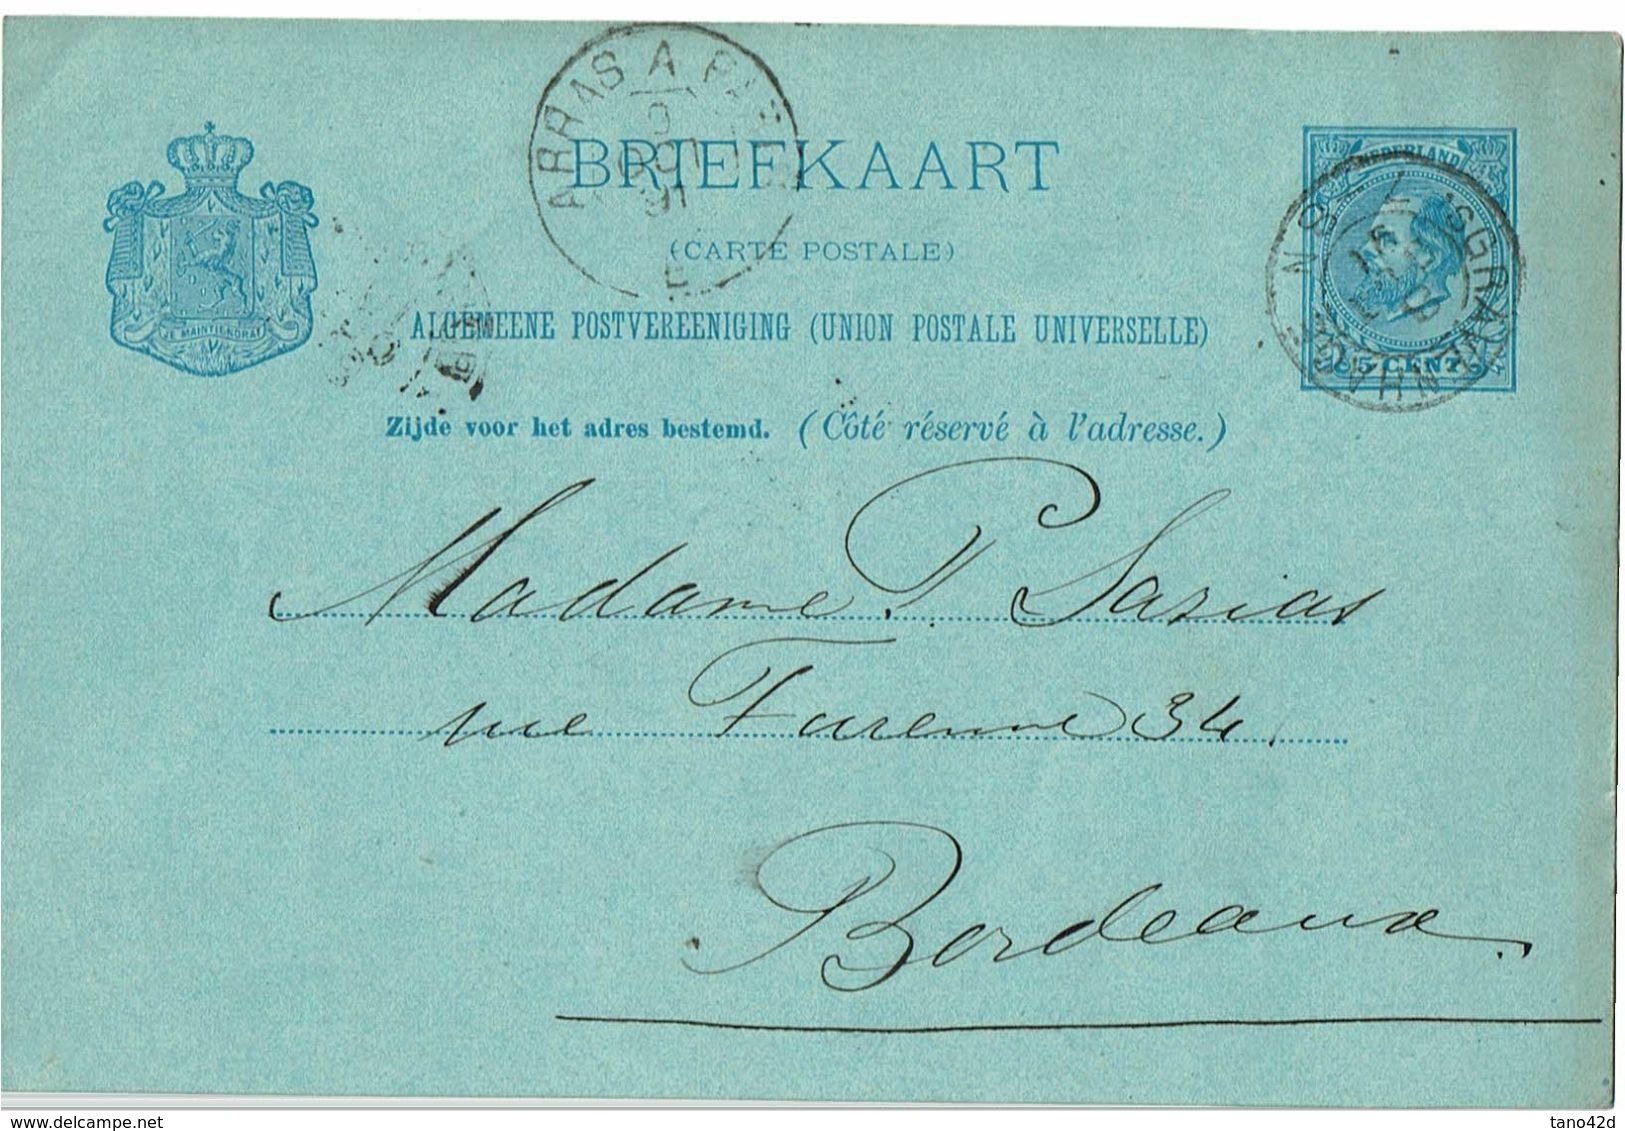 ARRAS A
91
E
BRIEFKAART
(CARTE POSTALE)
ALGEMEENE POSTVEREENIGING (UNION POSTALE UNIVERSELLE)
Zijde voor het adres bestemd. (Côté réservé à l'adresse.)
JE MAINTIENDRAI
NEDERLAND
5 CENT
'SGRAVENHAGE
Madame P. Sazias
rue Turenne 34.
Bordeaux.
www.delcampe.net
tano42d